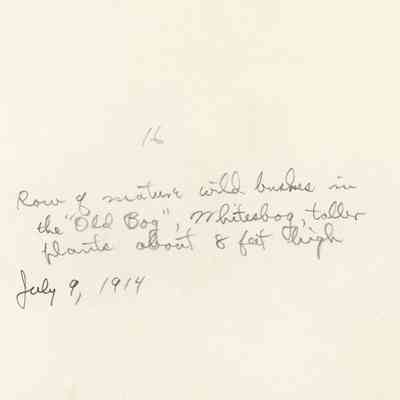 16
Row of mature wild bushes in
the "Old Bog", Whitesbog, taller
plants about 8 feet high
July 9, 1914